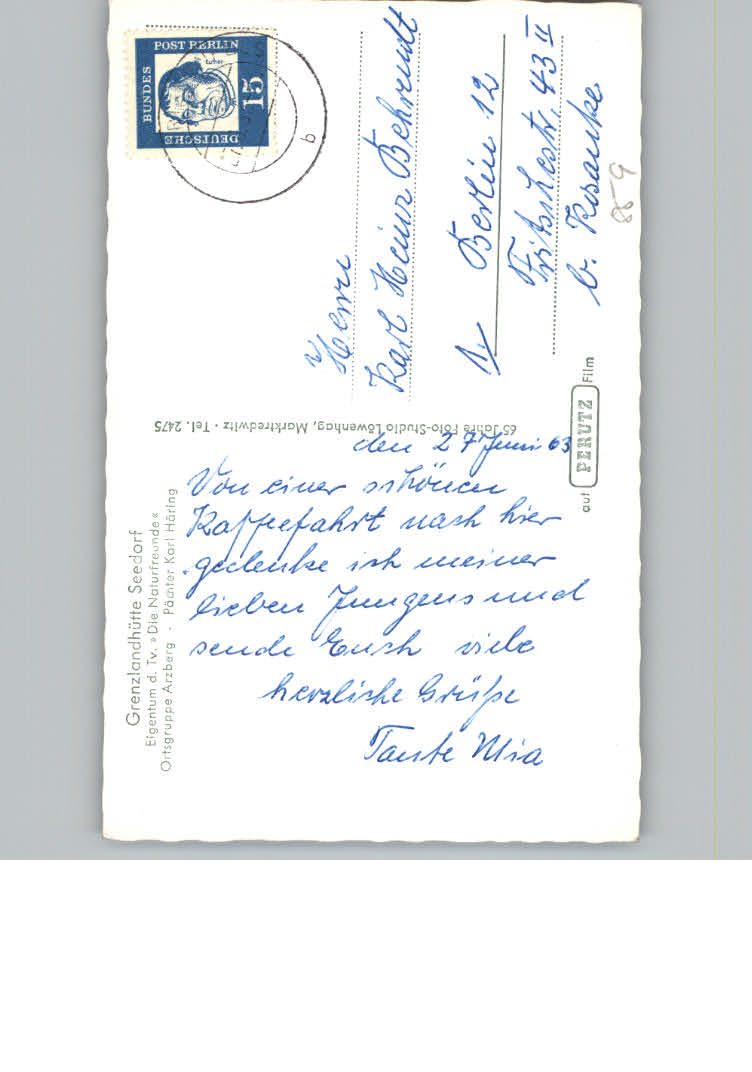 Grenzlandhütte Seedorf
Eigentum d. Tv. »Die Naturfreunde«
Ortsgruppe Arzberg - Pächter Karl Häring
den 27 Juni 63
Von einer schönen
Kaffeefahrt nach hier
gedenke ich meiner
lieben Jungens und
sende Euch viele
herzliche Grüße
Tante Mia
65 Jahre Foto-Studio Löwenhag, Marktredwitz · Tel. 2475
auf PERUTZ Film
DEUTSCHE BUNDES POST BERLIN
15
b
Herrn
Karl Heinz Behrendt
1 Berlin 12
Fritschestr. 43 II
b. Kosanke
859